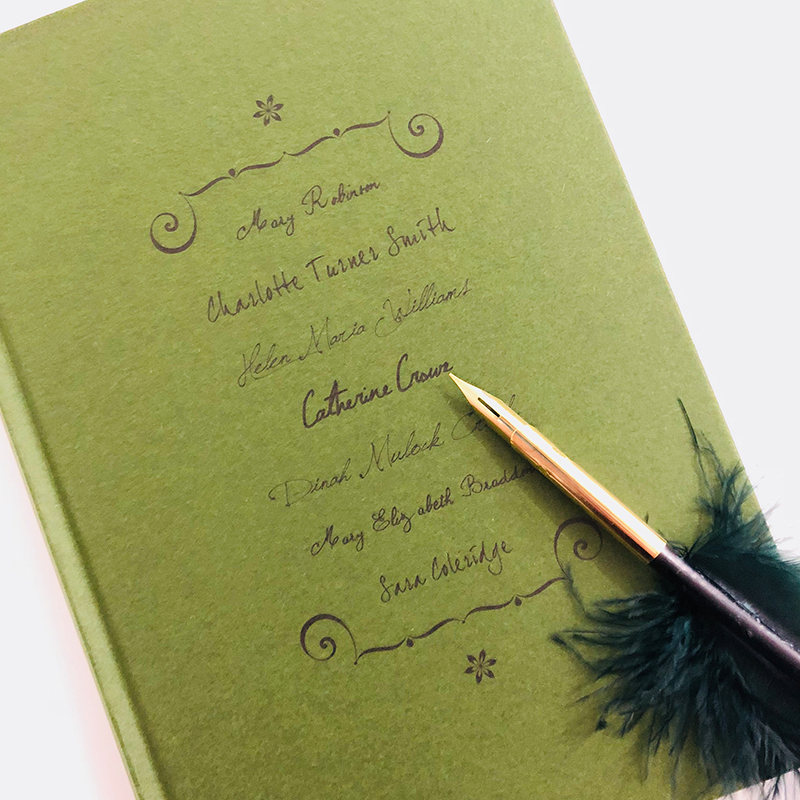 Mary Robinson
Charlotte Turner Smith
Helen Maria Williams
Catherine Crowe
Dinah Mulock
Mary Elizabeth Braddon
Sara Coleridge